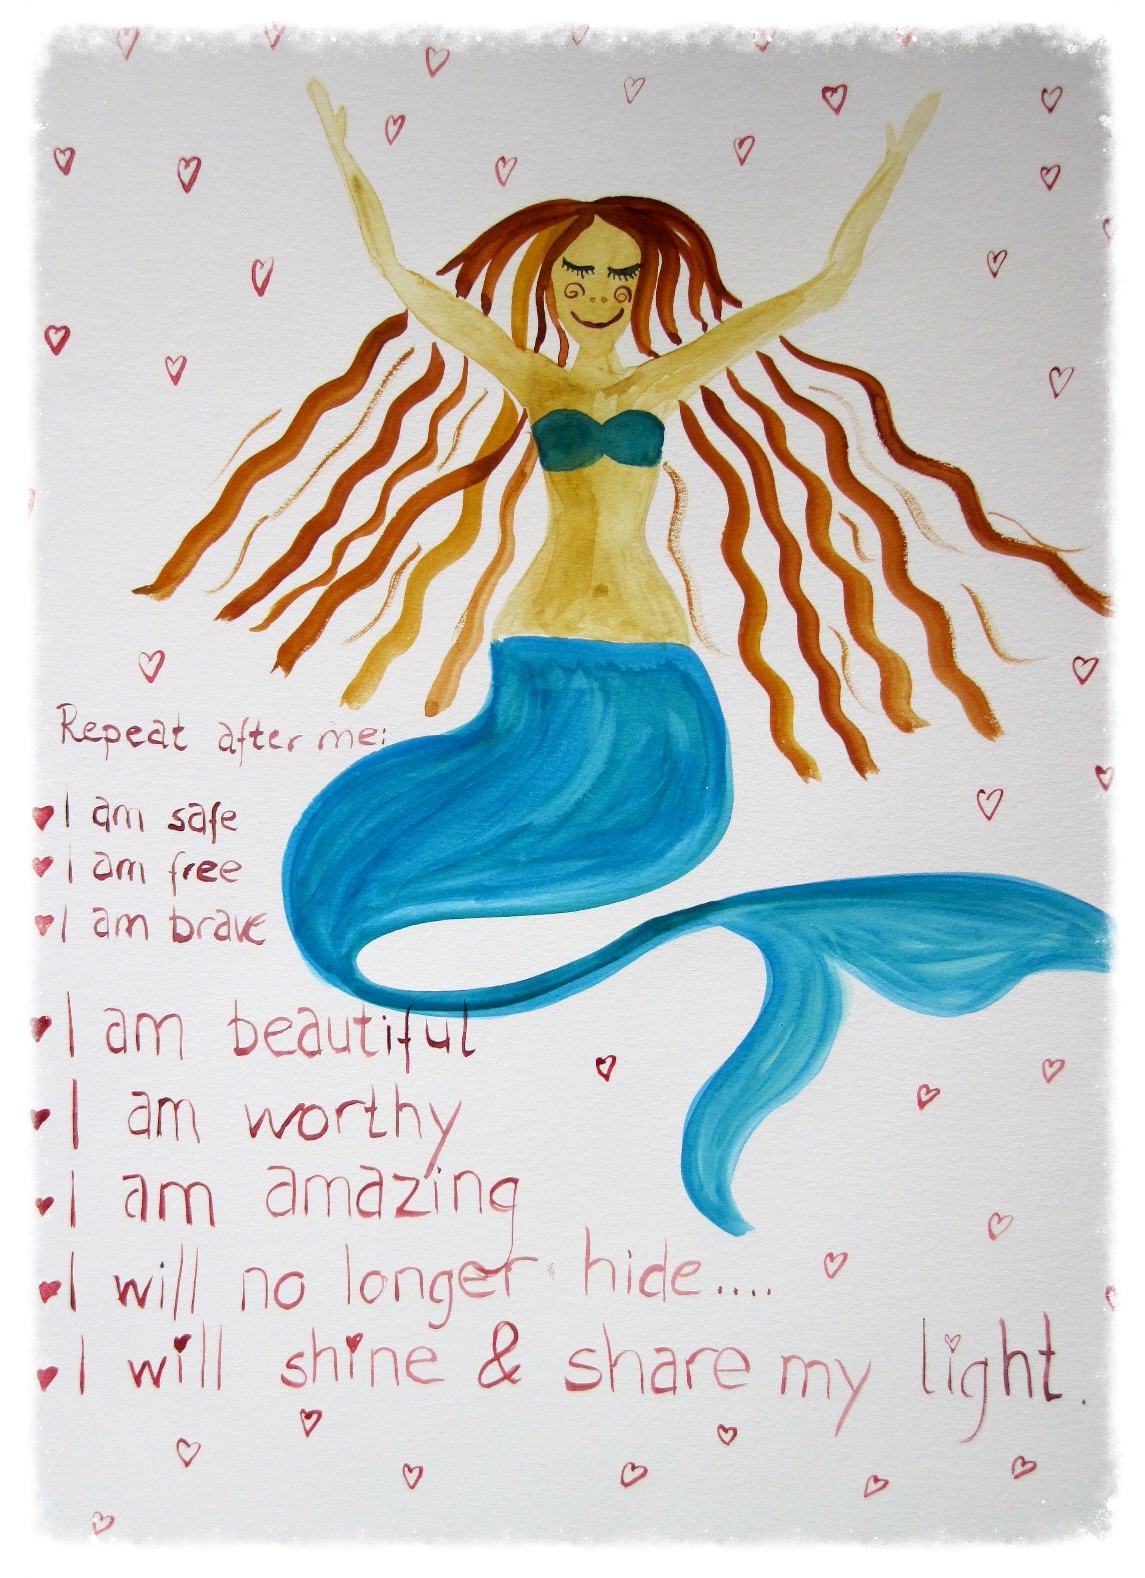 Repeat after me:
I am safe
i am free
I am brave
I am beautiful
I am worthy
I am amazing
I will no longer hide....
I will shine & share my light.